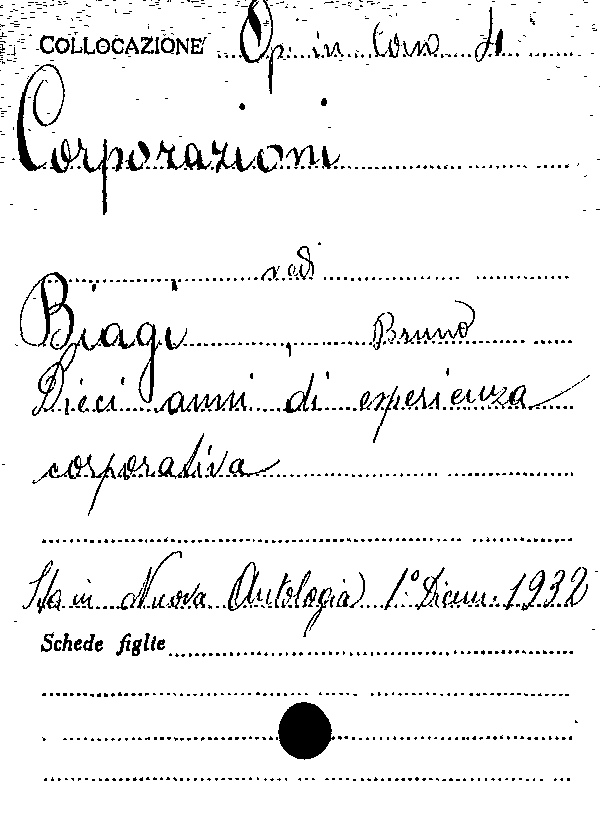 COLLOCAZIONE Op. in Corso di
Corporazioni
vedi
Biagi, Bruno
Dieci anni di esperienza
corporativa
Sta in Nuova Antologia 1° Dicem. 1932
Schede figlie